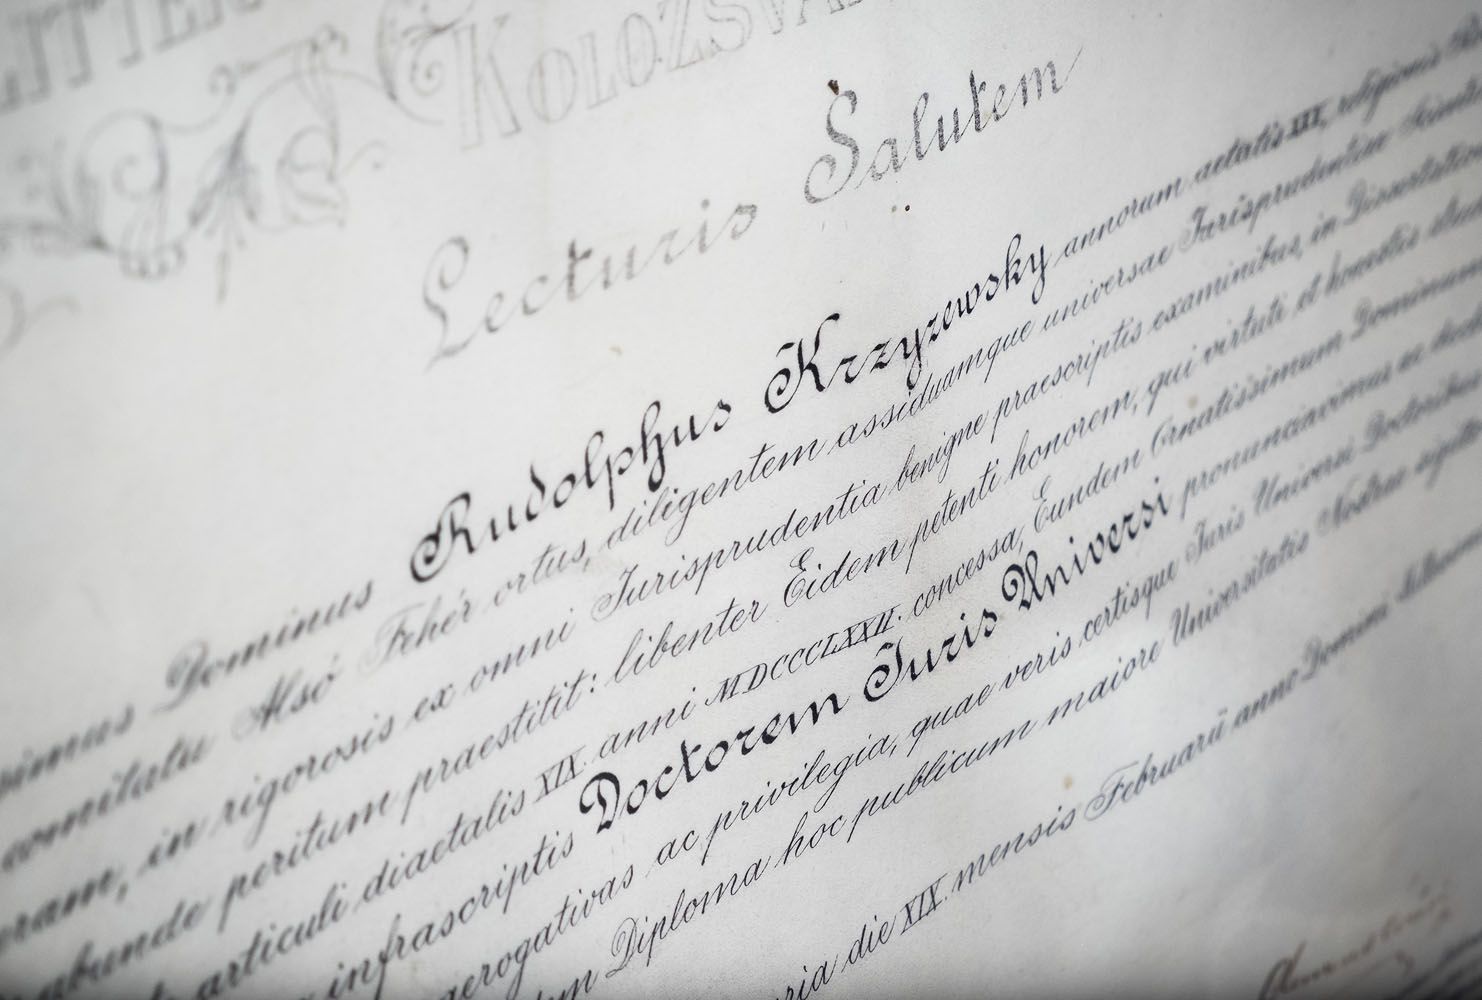 LITTER
KOLOZSVÁ
Lecturis Salutem
Dominus Rudolphus Krzyzewsky annorum aetatis III, religionis
comitatu Alsó Fehér ortus, diligentem assiduamque universae Iurisprudentiae
in rigorosis ex omni Iurisprudentia benigne praescriptis examinibus, in Dissertation
abunde peritum praestitit: libenter Eidem petenti honorem, qui virtuti et honestis
articuli diaetalis XIX. anni MDCCCLXXII. concessa, Eundem Ornatissimum Dominum
infrascriptis Doctorem Iuris Universi pronunciavimus ac
erogativas ac privilegia, quae veris certisque Iuris Universi Doctoribus
Diploma hoc publicum maiore Universitatis Nostrae sigillo
ria die XIX. mensis Februarii anno Domini